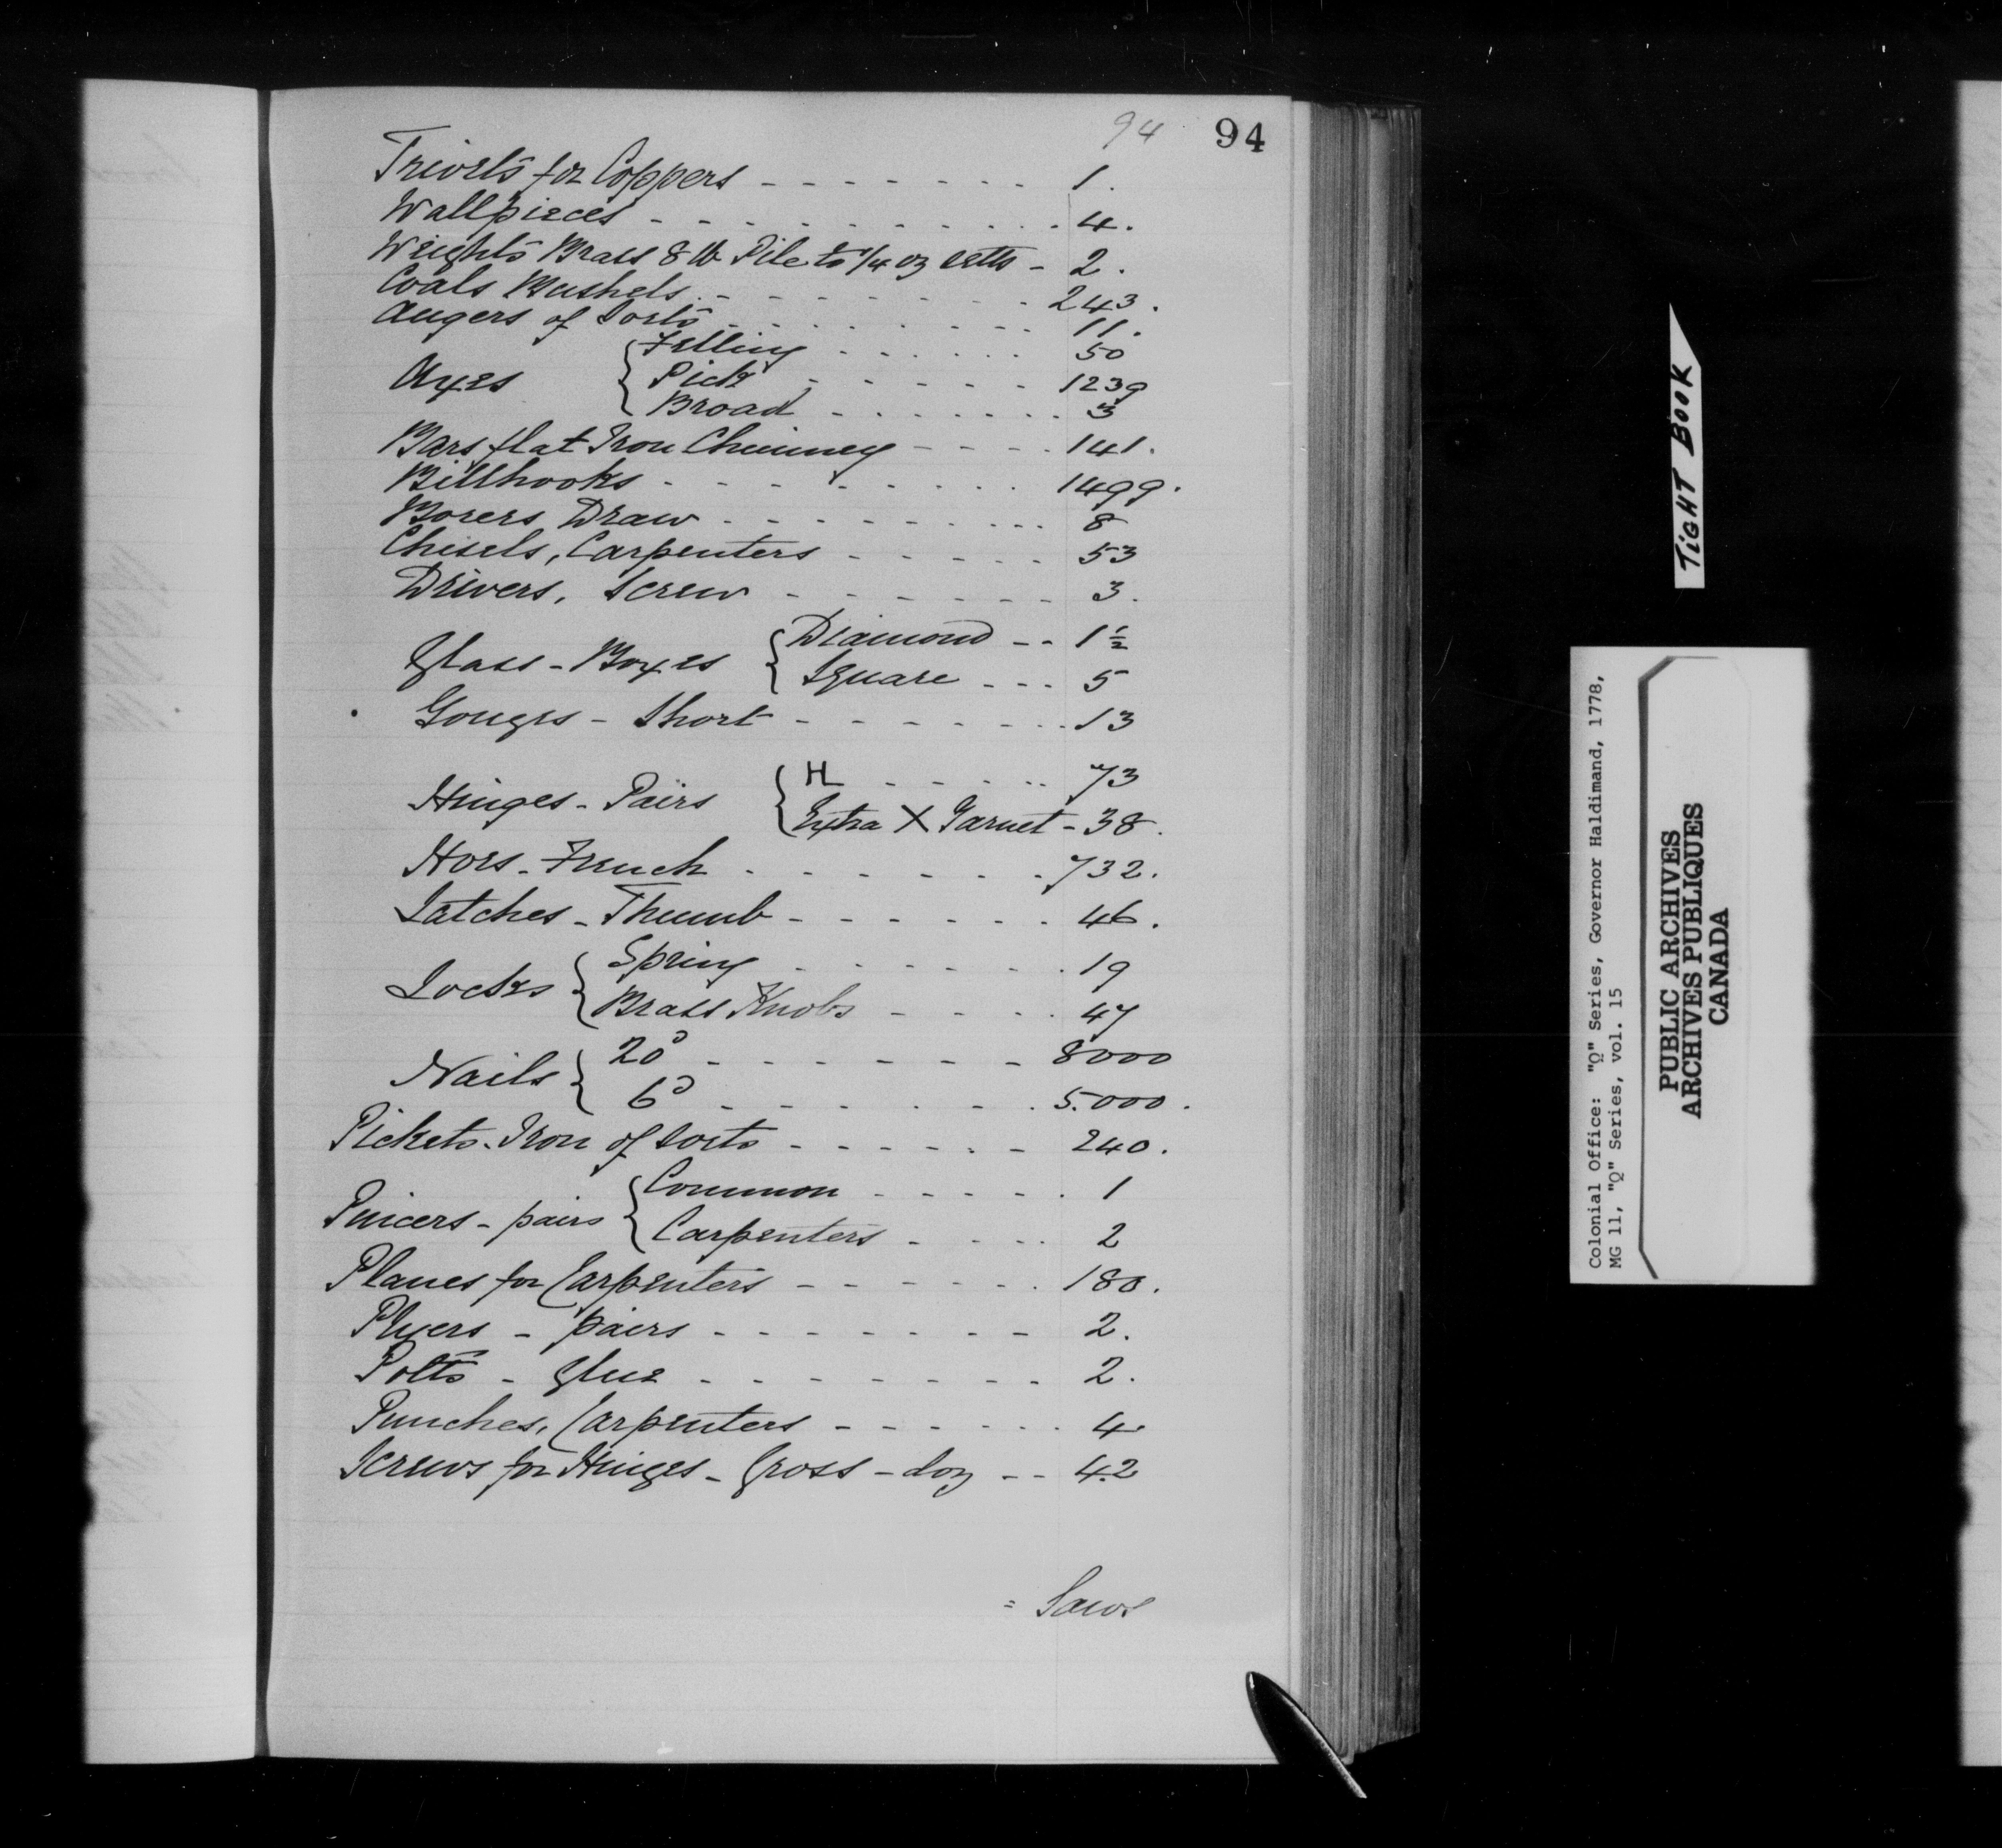 94 94
Trivets for Coppers - - - - - - - - 1.
Wallpieces - - - - - - - - - - - 4.
Weights Brass 8 lb Pile to 1/4 oz setts - 2.
Coals Bushels - - - - - - - - 243.
Augers of Sorts - - - - - - - - 11.
Axes { Felling - - - - - - 50
Pick - - - - - - 1239
Broad - - - - - - - 3
Bars flat Iron Chimney - - - - 141.
Billhooks - - - - - - - - 1499.
Borers, Draw - - - - - - - - - 8
Chisels, Carpenters - - - - - - 53
Drivers, Screw - - - - - - - 3.
Glass - Boxes { Diamond - - 1 1/2
Square - - - 5
Gouges - Short - - - - - - - - 13
Hinges - Pairs { H - - - - - - 73
Extra X Garnet - 38.
Hoes - French - - - - - - - 732.
Latches - Thumb - - - - - - - 46.
Locks { Spring - - - - - - 19
Brass Knobs - - - - 47
Nails { 20d - - - - - - - 8000
6d - - - - - - - 5.000.
Pickets - Iron of Sorts - - - - - - 240.
Pincers - pairs { Common - - - - - 1
Carpenters - - - - 2
Planes for Carpenters - - - - - - - 180.
Plyers - pairs - - - - - - - - 2.
Potts - Glue - - - - - - - - 2.
Punches, Carpenters - - - - - - 4
Screws for Hinges - Gross - doz - - 4.2
= Saws
TIGHT BOOK
Colonial Office: "Q" Series, Governor Haldimand, 1778,
MG 11, "Q" Series, vol. 15
PUBLIC ARCHIVES
ARCHIVES PUBLIQUES
CANADA